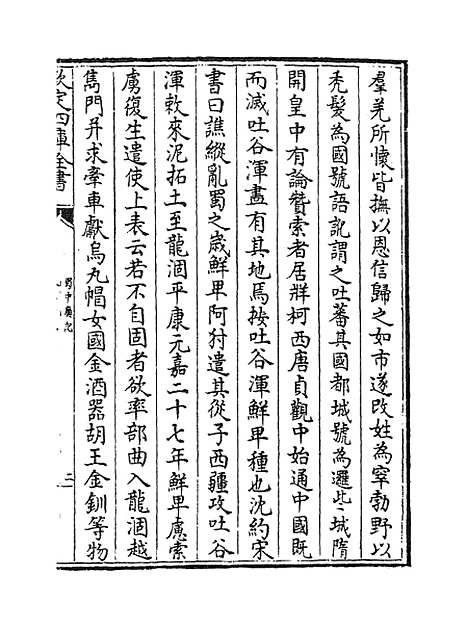 羣羌所懷皆撫以恩信歸之如市遂改姓為窣勃野以
秃髮為國號語訛謂之吐蕃其國都城號為邏些城隋
開皇中有論贊索者居牂柯西唐貞觀中始通中國既
而滅吐谷渾盡有其地焉按吐谷渾鮮卑種也沈約宋
書曰譙縱亂蜀之歲鮮卑阿犲遣其從子西疆攻吐谷
渾敕來泥拓土至龍涸平康元嘉二十七年鮮卑慮索
虜復生遣使上表云若不自固者欲率部曲入龍涸越
雋門并求牽車獻烏丸帽女國金酒器胡王金釧等物
欽定四庫全書
蜀中廣記
二